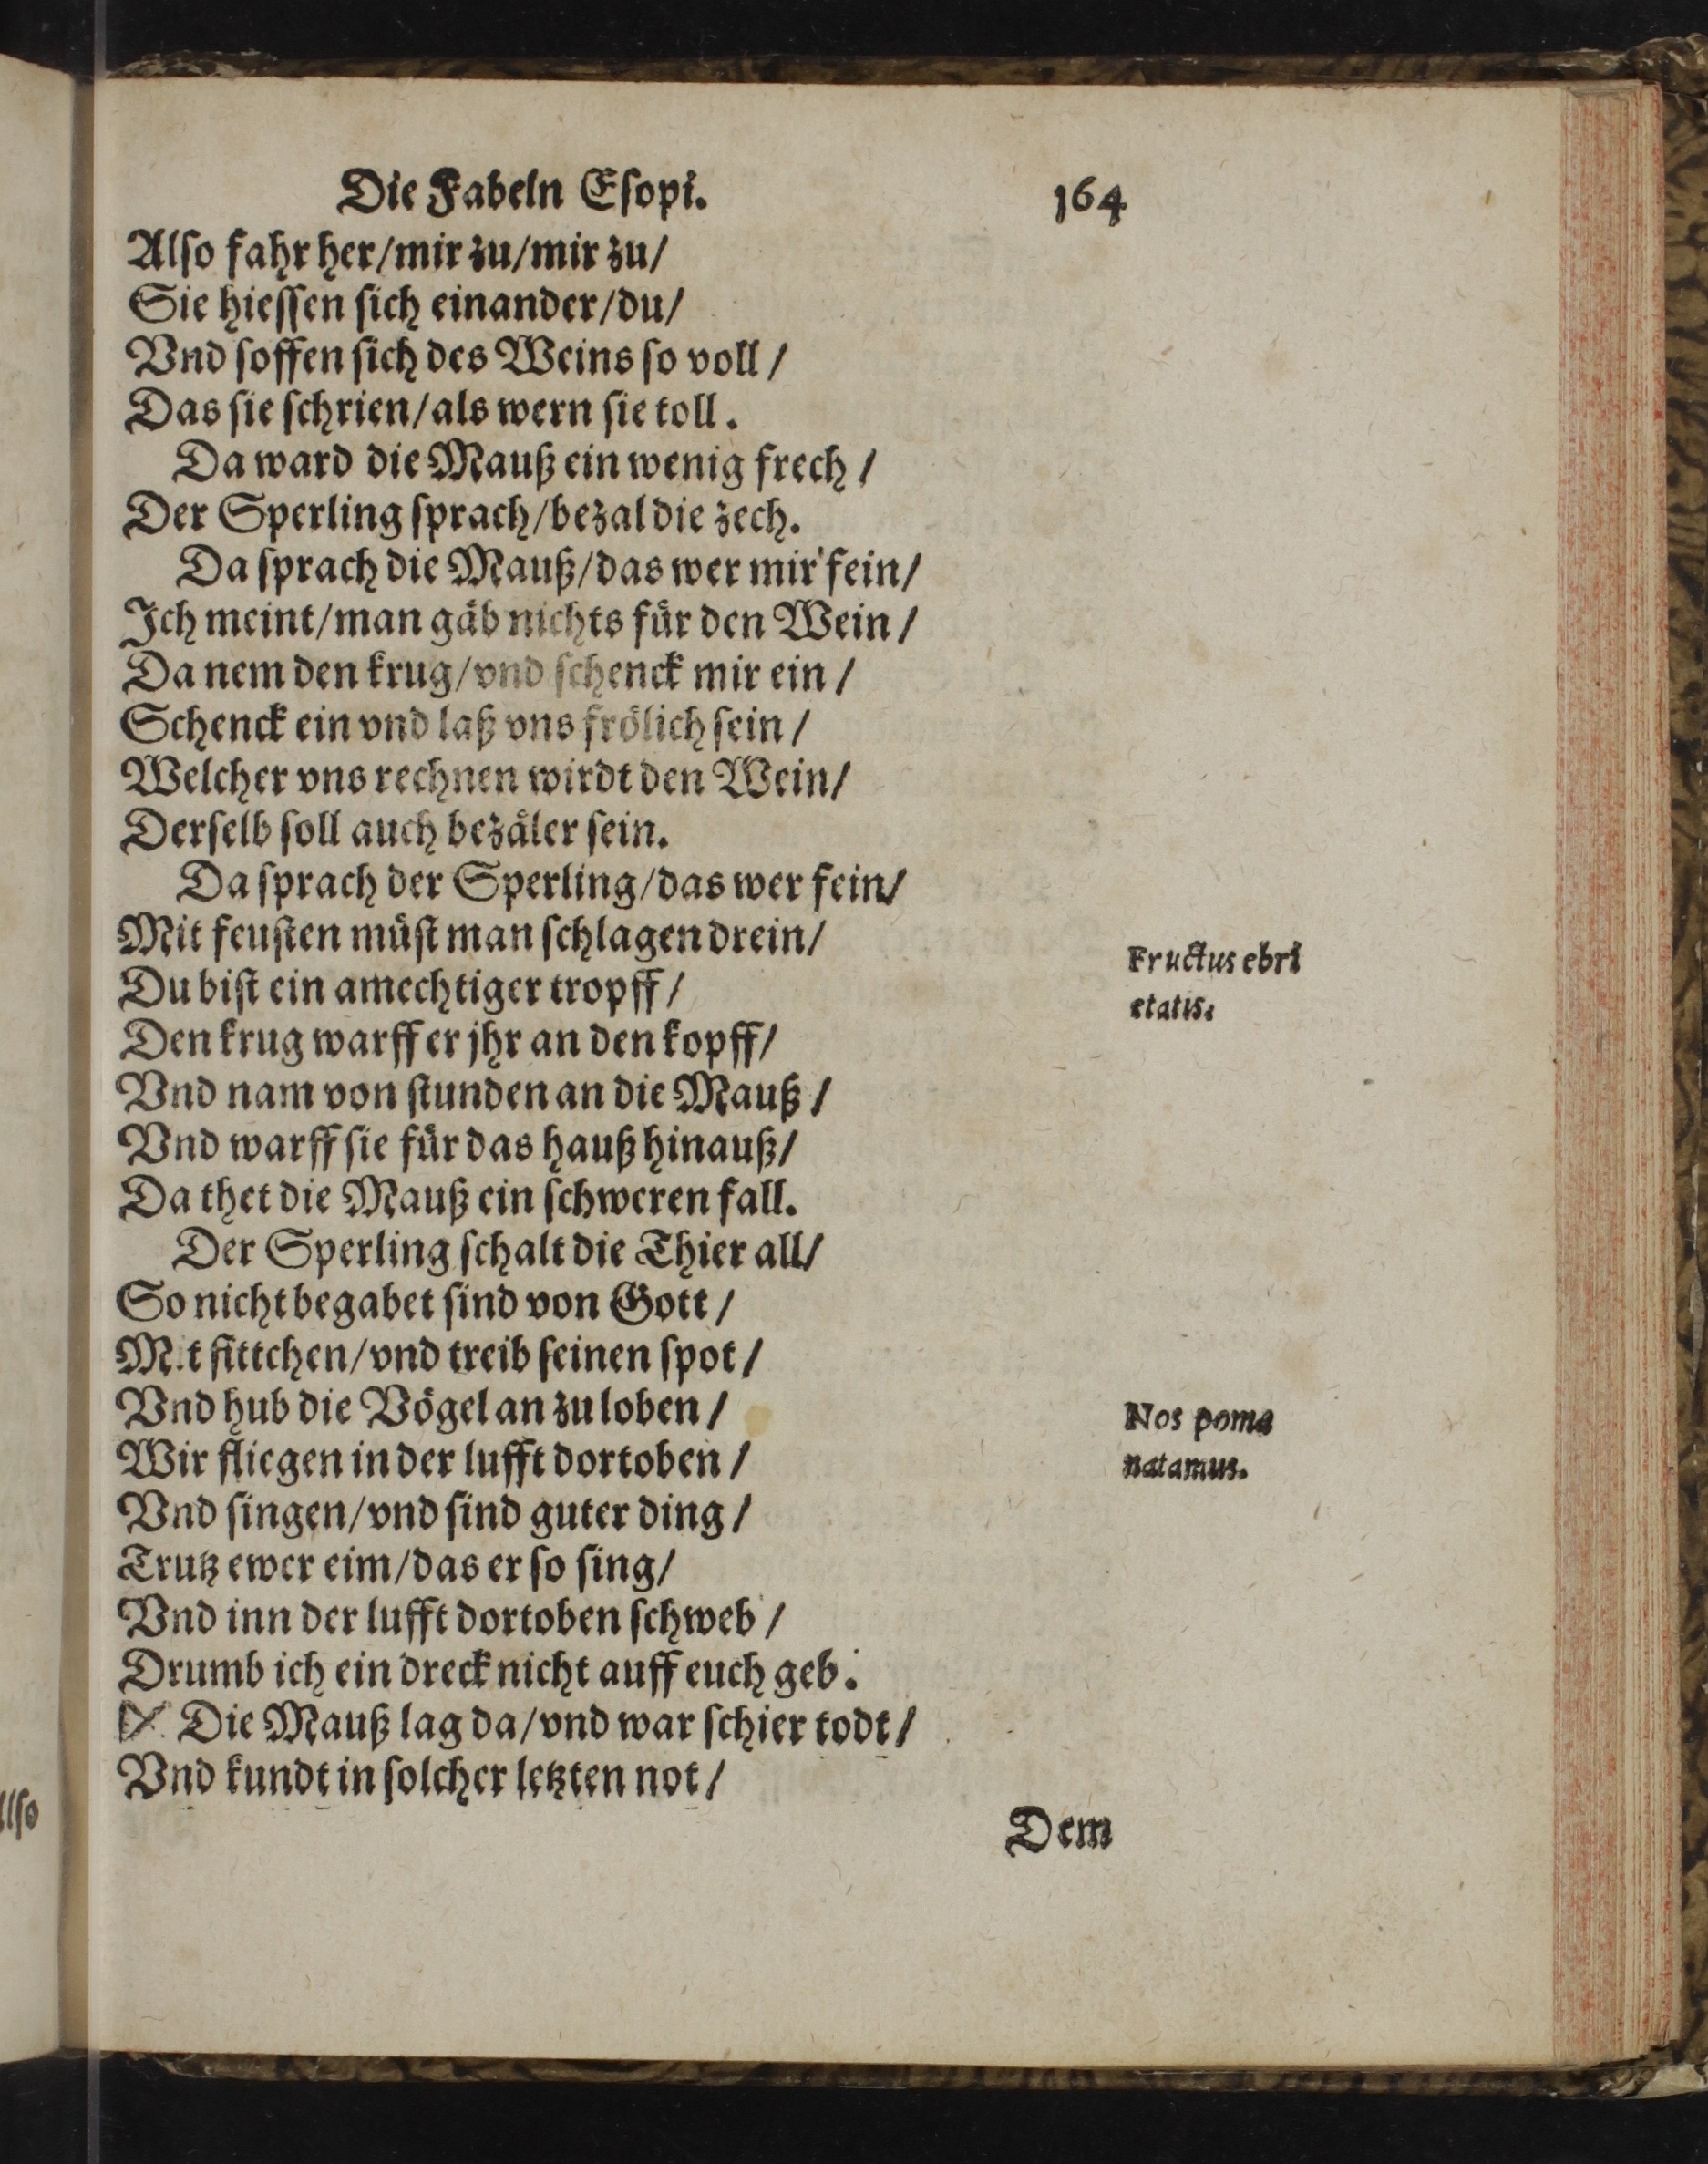 Die Fabeln Eſopi. 164
Alſo fahr her/mir zu/mir zu/
Sie hieſſen ſich einander/du/
Vnd ſoffen ſich des Weins ſo voll/
Das ſie ſchrien/als wern ſie toll.
Da ward die Mauß ein wenig frech/
Der Sperling ſprach/bezal die zech.
Da ſprach die Mauß/das wer mir fein/
Jch meint/man gäb nichts für den Wein/
Da nem den krug/vnd ſchenck mir ein/
Schenck ein vnd laß vns frölich ſein/
Welcher vns rechnen wirdt den Wein/
Derſelb ſoll auch bezäler ſein.
Da ſprach der Sperling/das wer fein/
Mit feuſten müſt man ſchlagen drein/
Du biſt ein amechtiger tropff/
Den krug warff er jhr an den kopff/
Fructus ebri
etatis.
Vnd nam von ſtunden an die Mauß/
Vnd warff ſie für das hauß hinauß/
Da thet die Mauß ein ſchweren fall.
Der Sperling ſchalt die Thier all/
So nicht begabet ſind von Gott/
Mit fittchen/vnd treib ſeinen ſpot/
Vnd hub die Vögel an zu loben/
Wir fliegen in der lufft dortoben/
Nos poma
natamus.
Vnd ſingen/vnd ſind guter ding/
Trutz ewer eim/das er ſo ſing/
Vnd inn der lufft dortoben ſchweb/
Drumb ich ein dreck nicht auff euch geb.
Die Mauß lag da/vnd war ſchier todt/
Vnd kundt in ſolcher letzten not/
Dem
llſo